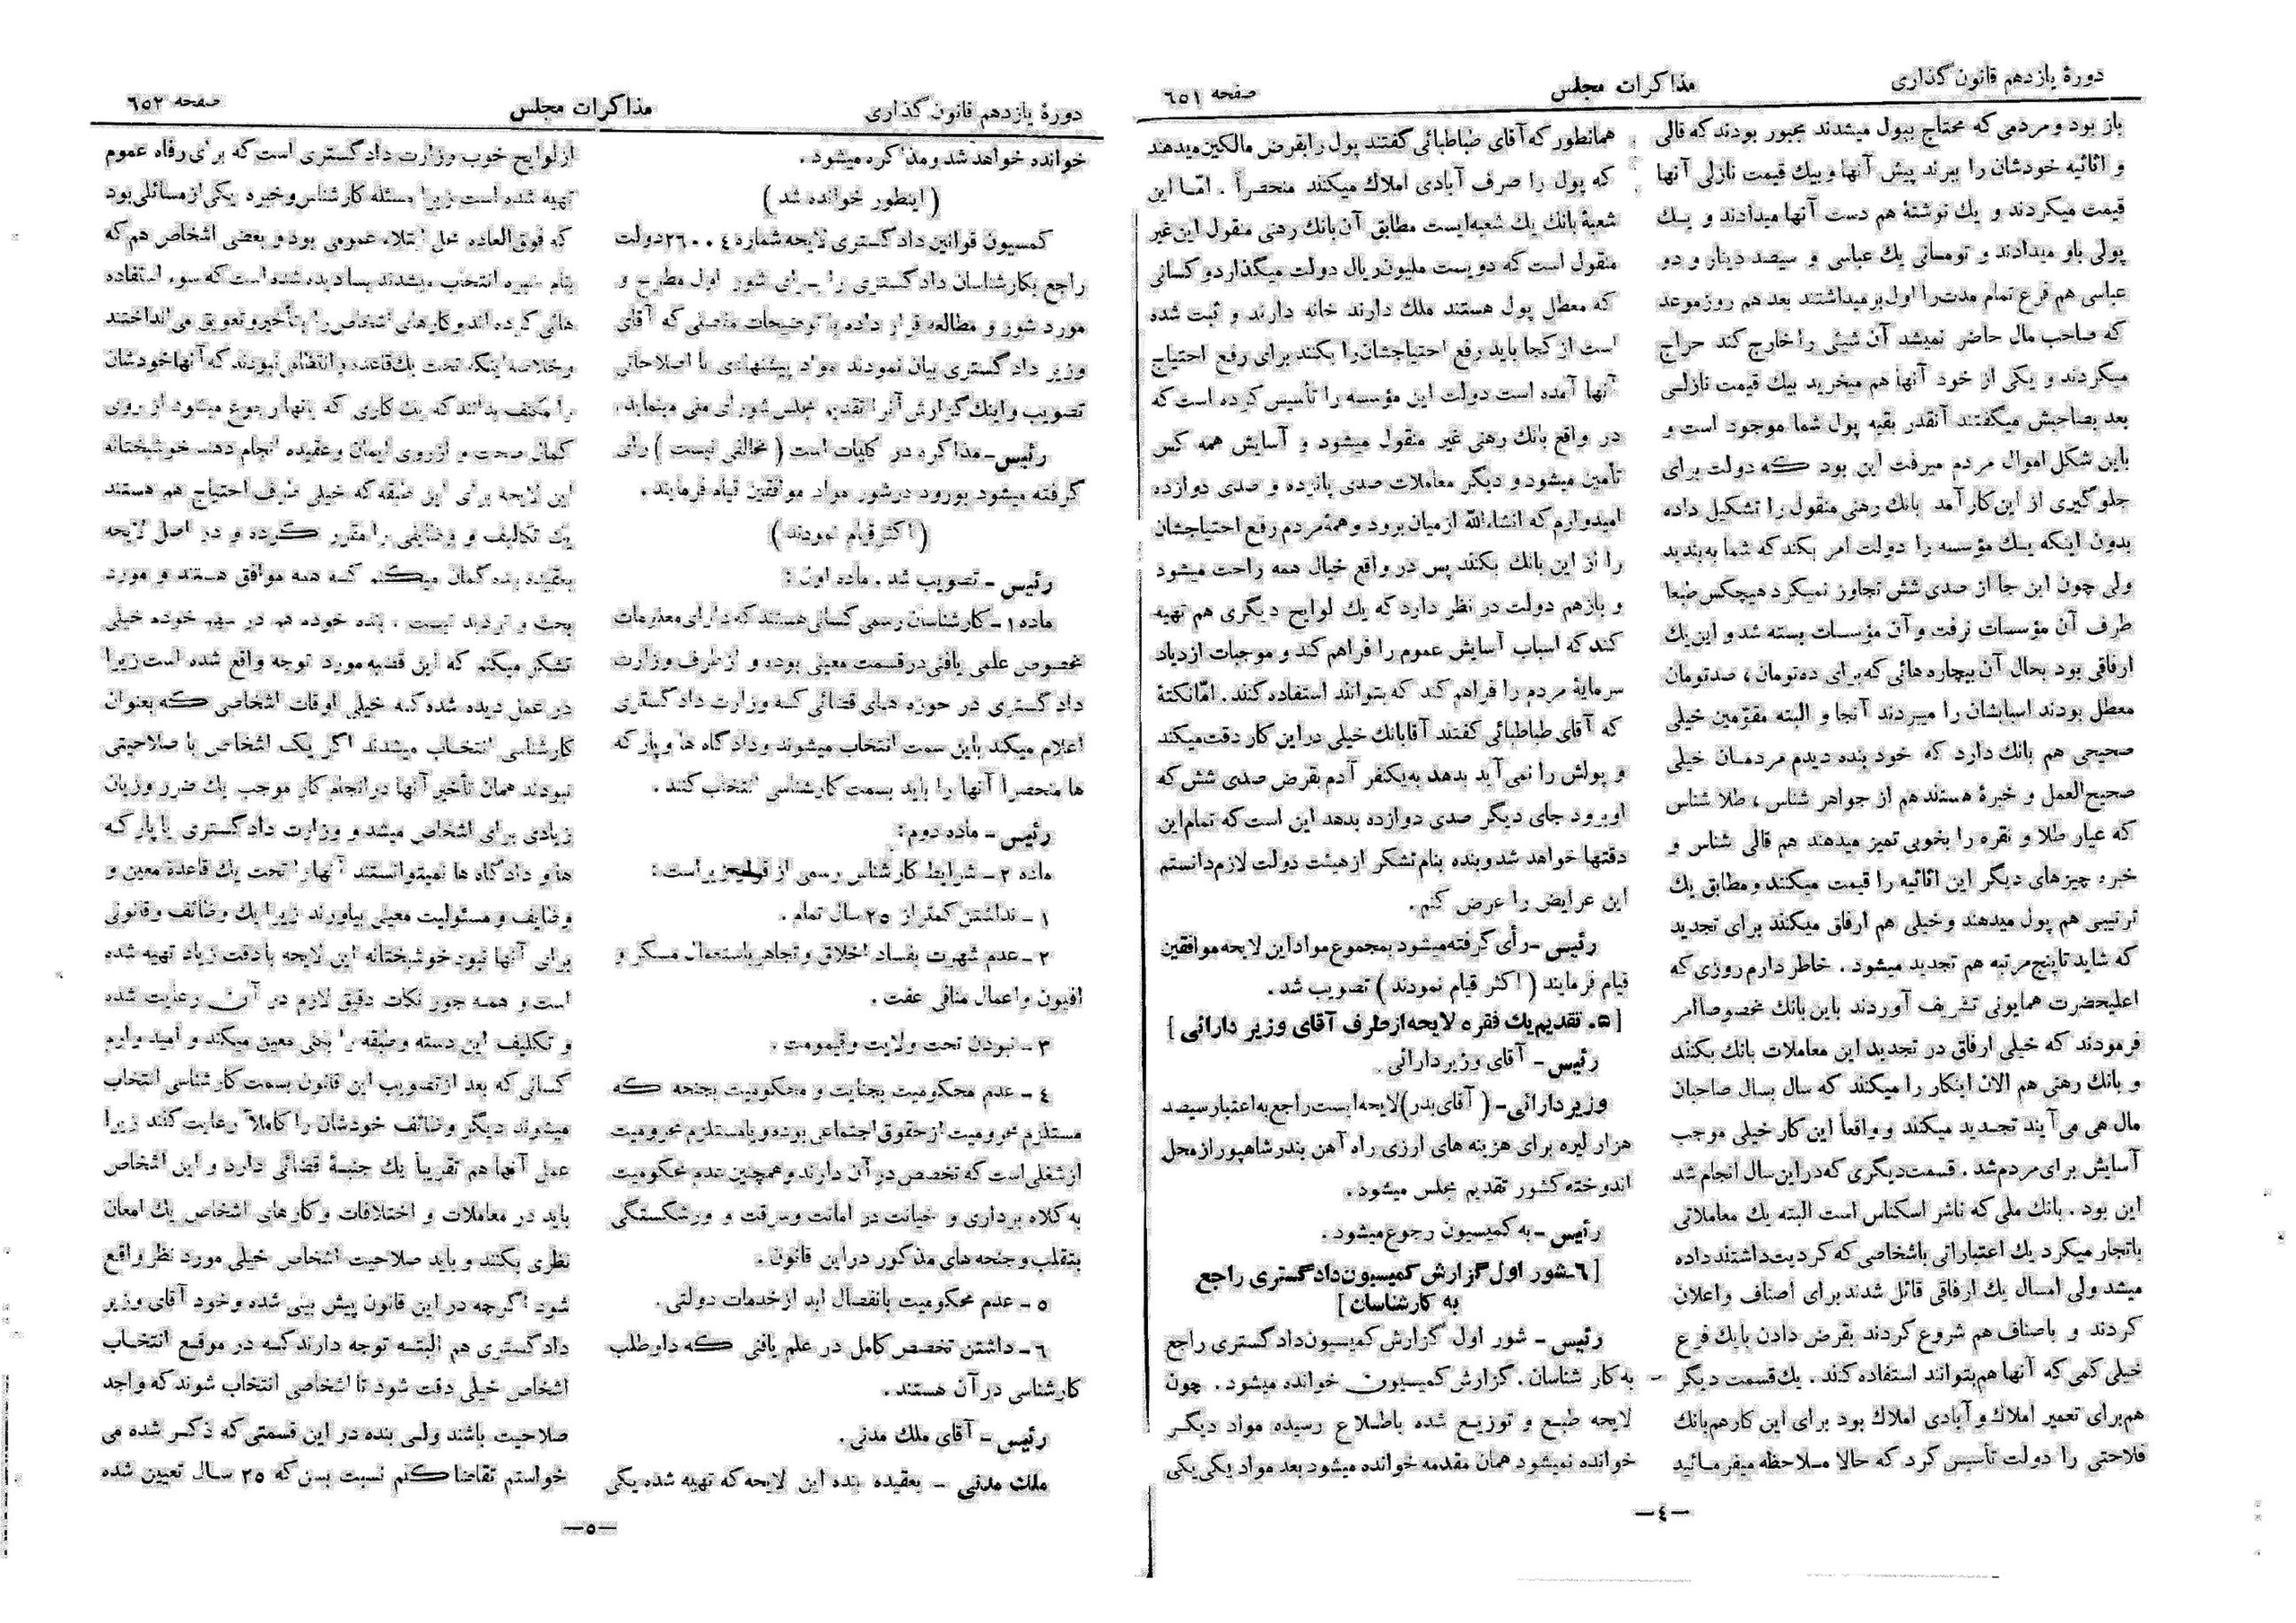 دورهٔ یازدهم قانون گذاری
مذاکرات مجلس
صفحه ٦٥١
باز بود و مردمی که محتاج بپول میشدند مجبور بودند که قالی
و اثاثیه خودشان را ببرند پیش آنها و بیك قیمت نازلی آنها
قیمت میکردند و یك نوشتهٔ هم دست آنها میدادند و یك
پولی باو میدادند و تومانی یك عباسی و سیصد دینار و دو
عباسی هم فرع تمام مدت را اول برمیداشتند بعد هم روز موعد
که صاحب مال حاضر نمیشد آن شیئی را خارج کند حراج
میکردند و یکی از خود آنها هم میخرید بیك قیمت نازلی
بعد بصاحبش میگفتند آنقدر بقیه پول شما موجود است و
باین شکل اموال مردم میرفت این بود که دولت برای
جلوگیری از این کار آمد بانك رهنی منقول را تشکیل داده
بدون اینکه یك مؤسسه را دولت امر بکند که شما به بندید
ولی چون این جا از صدی شش تجاوز نمیکرد هیچکس طبعا
طرف آن مؤسسات نرفت و آن مؤسسات بسته شد و این یك
ارفاقی بود بحال آن بیچاره هائی که برای ده تومان ، صد تومان
معطل بودند اسبابشان را میبردند آنجا و البته مقوّمین خیلی
صحیحی هم بانك دارد که خود بنده دیدم مردمان خیلی
صحیح العمل و خبرهٔ هستند هم از جواهر شناس ، طلا شناس
که عیار طلا و نقره را بخوبی تمیز میدهند هم قالی شناس و
خبره چیزهای دیگر این اثاثیه را قیمت میکنند و مطابق یك
ترتیبی هم پول میدهند و خیلی هم ارفاق میکنند برای تجدید
که شاید تا پنج مرتبه هم تجدید میشود . خاطر دارم روزی که
اعلیحضرت همایونی تشریف آوردند باین بانك مخصوصا امر
فرمودند که خیلی ارفاق در تجدید این معاملات بانك بکنند
و بانك رهنی هم الان اینکار را میکنند که سال بسال صاحبان
مال هی می آیند تجدید میکنند و واقعاً این کار خیلی موجب
آسایش برای مردم شد . قسمت دیگری که در این سال انجام شد
این بود . بانك ملی که ناشر اسکناس است البته یك معاملاتی
باتجار میکرد یك اعتباراتی باشخاصی که کردیت داشتند داده
میشد ولی امسال یك ارفاقی قائل شدند برای اصناف و اعلان
کردند و باصناف هم شروع کردند بقرض دادن بایك فرع
خیلی کمی که آنها هم بتوانند استفاده کنند . یك قسمت دیگر
هم برای تعمیر املاك و آبادی املاك بود برای این کار هم بانك
فلاحتی را دولت تأسیس کرد که حالا ملاحظه میفرمائید
همانطور که آقای طباطبائی گفتند پول را بقرض مالکین میدهند
که پول را صرف آبادی املاك میکنند منحصراً . امّا این
شعبهٔ بانك یك شعبه ایست مطابق آن بانك رهنی منقول این غیر
منقول است که دویست ملیون ریال دولت میگذارد و کسانی
که معطل پول هستند ملك دارند خانه دارند و ثبت شده
است از کجا باید رفع احتیاجشان را بکنند برای رفع احتیاج
آنها آمده است دولت این مؤسسه را تأسیس کرده است که
در واقع بانك رهنی غیر منقول میشود و آسایش همه کس
تأمین میشود و دیگر معاملات صدی پانزده و صدی دوازده
امیدوارم که انشاءالله از میان برود و همهٔ مردم رفع احتیاجشان
را از این بانك بکنند پس در واقع خیال همه راحت میشود
و بازهم دولت در نظر دارد که یك لوایح دیگری هم تهیه
کند که اسباب آسایش عموم را فراهم کند و موجبات ازدیاد
سرمایهٔ مردم را فراهم کند که بتوانند استفاده کنند . امّا نکتهٔ
که آقای طباطبائی گفتند آقا بانك خیلی در این کار دقت میکند
و پولش را نمی آید بدهد به یکنفر آدم بقرض صدی شش که
او برود جای دیگر صدی دوازده بدهد این است که تمام این
دقتها خواهد شد و بنده بنام تشکر از هیئت دولت لازم دانستم
این عرایض را عرض کنم .
رئیس - رأی گرفته میشود بمجموع مواد این لایحه موافقین
قیام فرمایند ( اکثر قیام نمودند ) تصویب شد .
[ ٥ . تقدیم یك فقره لایحه از طرف آقای وزیر دارائی ]
رئیس - آقای وزیر دارائی .
وزیر دارائی - ( آقای بدر) لایحه ایست راجع به اعتبار سیصد
هزار لیره برای هزینه های ارزی راه آهن بندر شاهپور از محل
اندوخته کشور تقدیم مجلس میشود .
رئیس - به کمیسیون رجوع میشود .
[ ٦- شور اول گزارش کمیسیون دادگستری راجع
به کارشناسان ]
رئیس - شور اول گزارش کمیسیون دادگستری راجع
به کار شناسان . گزارش کمیسیون خوانده میشود . چون
لایحه طبع و توزیع شده باطلاع رسیده مواد دیگر
خوانده نمیشود همان مقدمه خوانده میشود بعد مواد یکی یکی
—٤—
دورهٔ یازدهم قانون گذاری
مذاکرات مجلس
صفحه ٦٥٢
خوانده خواهد شد و مذاکره میشود .
( اینطور خوانده شد )
کمسیون قوانین دادگستری لایحه شماره ٢٦٠٠٤ دولت
راجع بکارشناسان دادگستری را برای شور اول مطرح و
مورد شور و مطالعه قرار داده با توضیحات مفصلی که آقای
وزیر دادگستری بیان نمودند مواد پیشنهادی با اصلاحاتی
تصویب و اینك گزارش آنرا تقدیم مجلس شورای ملی مینماید .
رئیس - مذاکره در کلیات است ( مخالفی نیست ) رأی
گرفته میشود بورود در شور مواد موافقین قیام فرمایند .
( اکثر قیام نمودند )
رئیس - تصویب شد . ماده اول :
ماده ١ - کارشناسان رسمی کسانی هستند که دارای معلومات
مخصوص علمی یا فنی در قسمت معینی بوده و از طرف وزارت
دادگستری در حوزه های قضائی که وزارت دادگستری
اعلام میکند باین سمت انتخاب میشوند و دادگاه ها و پارکه
ها منحصراً آنها را باید بسمت کارشناسی انتخاب کنند .
رئیس - ماده دوم :
ماده ٢ - شرایط کارشناس رسمی از قرار زیر است :
١ - نداشتن کمتر از ٢٥ سال تمام .
٢ - عدم شهرت بفساد اخلاق و تجاهر باستعمال مسکر و
افیون و اعمال منافی عفت .
٣ - نبودن تحت ولایت و قیمومت .
٤ - عدم محکومیت بجنایت و محکومیت بجنحه که
مستلزم محرومیت از حقوق اجتماعی بوده و یا مستلزم محرومیت
از شغلی است که تخصص در آن دارند و همچنین عدم محکومیت
به کلاه برداری و خیانت در امانت و سرقت و ورشکستگی
بتقلب و جنحه های مذکور در این قانون .
٥ - عدم محکومیت بانفصال ابد از خدمات دولتی .
٦ - داشتن تخصص کامل در علم یا فنی که داوطلب
کارشناسی در آن هستند .
رئیس - آقای ملك مدنی .
ملك مدنی - بعقیده بنده این لایحه که تهیه شده یکی
از لوایح خوب وزارت دادگستری است که برای رفاه عموم
تهیه شده است زیرا مسئله کارشناس و خبره یکی از مسائلی بود
که فوق العاده محل ابتلاء عمومی بود و بعضی اشخاص هم که
بنام خبره انتخاب میشدند بسا دیده شده است که سوء استفاده
هائی کرده اند و کارهای اشخاص را بتأخیر و تعویق می انداختند
و خلاصه اینکه تحت یك قاعده و انتظامی نبودند که آنها خودشان
را مکلف بدانند که یك کاری که بآنها رجوع میشود از روی
کمال صحت و از روی ایمان و عقیده انجام دهند خوشبختانه
این لایحه برای این طبقه که خیلی طرف احتیاج هم هستند
یك تکالیف و وظایفی را مقرر کرده و در اصل لایحه
بعقیده بنده گمان میکنم که همه موافق هستند و مورد
بحث و تردید نیست . بنده خودم هم در سهم خودم خیلی
تشکر میکنم که این قضیه مورد توجه واقع شده است زیرا
در عمل دیده شده که خیلی اوقات اشخاصی که بعنوان
کارشناسی انتخاب میشدند اگر یک اشخاص با صلاحیتی
نبودند همان تأخیر آنها در انجام کار موجب یك ضرر و زیان
زیادی برای اشخاص میشد و وزارت دادگستری یا پارکه
ها و دادگاه ها نمیتوانستند آنها را تحت یك قاعده معین و
وظایف و مسئولیت معینی بیاورند زیرا یك وظائف و قانونی
برای آنها نبود خوشبختانه این لایحه بادقت زیاد تهیه شده
است و همه جور نکات دقیق لازم در آن رعایت شده
و تکلیف این دسته و طبقه را بکلی معین میکند و امیدوارم
کسانی که بعد از تصویب این قانون بسمت کارشناسی انتخاب
میشوند دیگر وظائف خودشان را کاملاً رعایت کنند زیرا
عمل آنها هم تقریباً یك جنبهٔ قضائی دارد و این اشخاص
باید در معاملات و اختلافات و کارهای اشخاص یك امعان
نظری بکنند و باید صلاحیت اشخاص خیلی مورد نظر واقع
شود اگرچه در این قانون پیش بینی شده و خود آقای وزیر
دادگستری هم البته توجه دارند که در موقع انتخاب
اشخاص خیلی دقت شود تا اشخاصی انتخاب شوند که واجد
صلاحیت باشند ولی بنده در این قسمتی که ذکر شده می
خواستم تقاضا کنم نسبت بسن که ٢٥ سال تعیین شده
—٥—